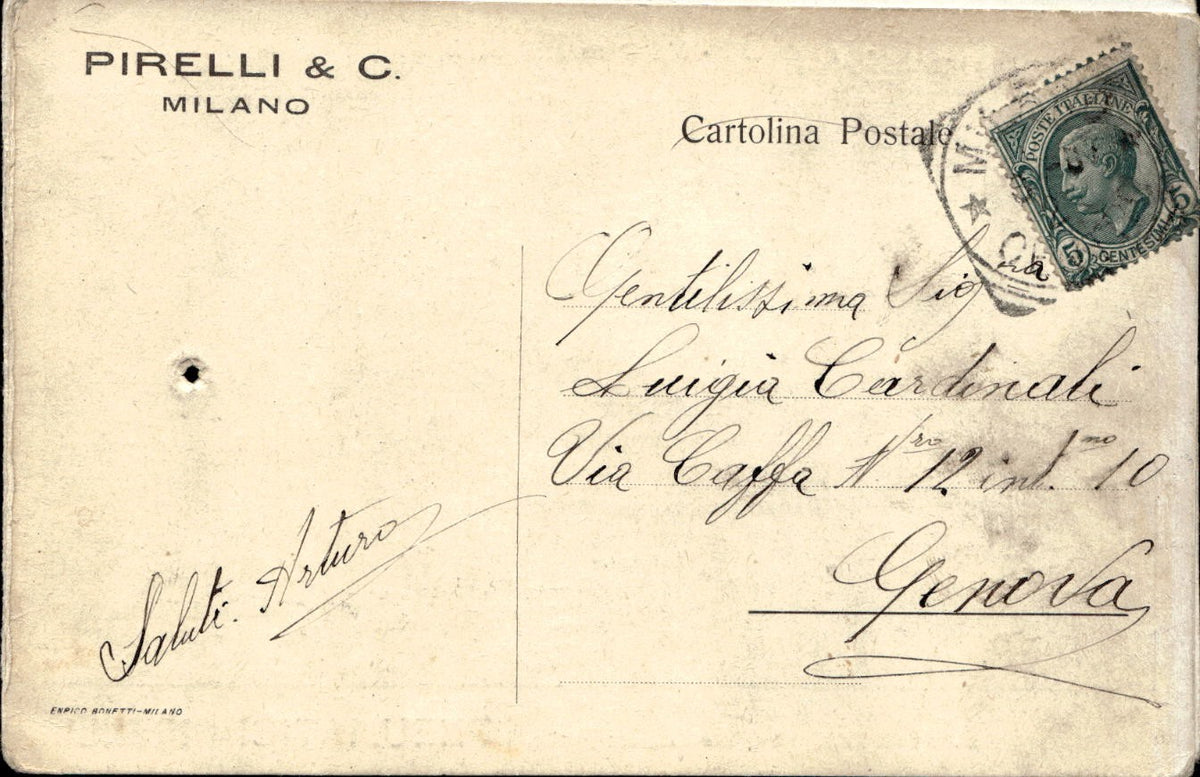 PIRELLI & C.
MILANO
Cartolina Postale
POSTE ITALIANE
5 CENTESIMI 5
Gentilissima Sigra
Luigia Cardinali
Via Caffa Nro 12 int.no 10
Genova
Saluti. Arturo
ENRICO BONETTI-MILANO